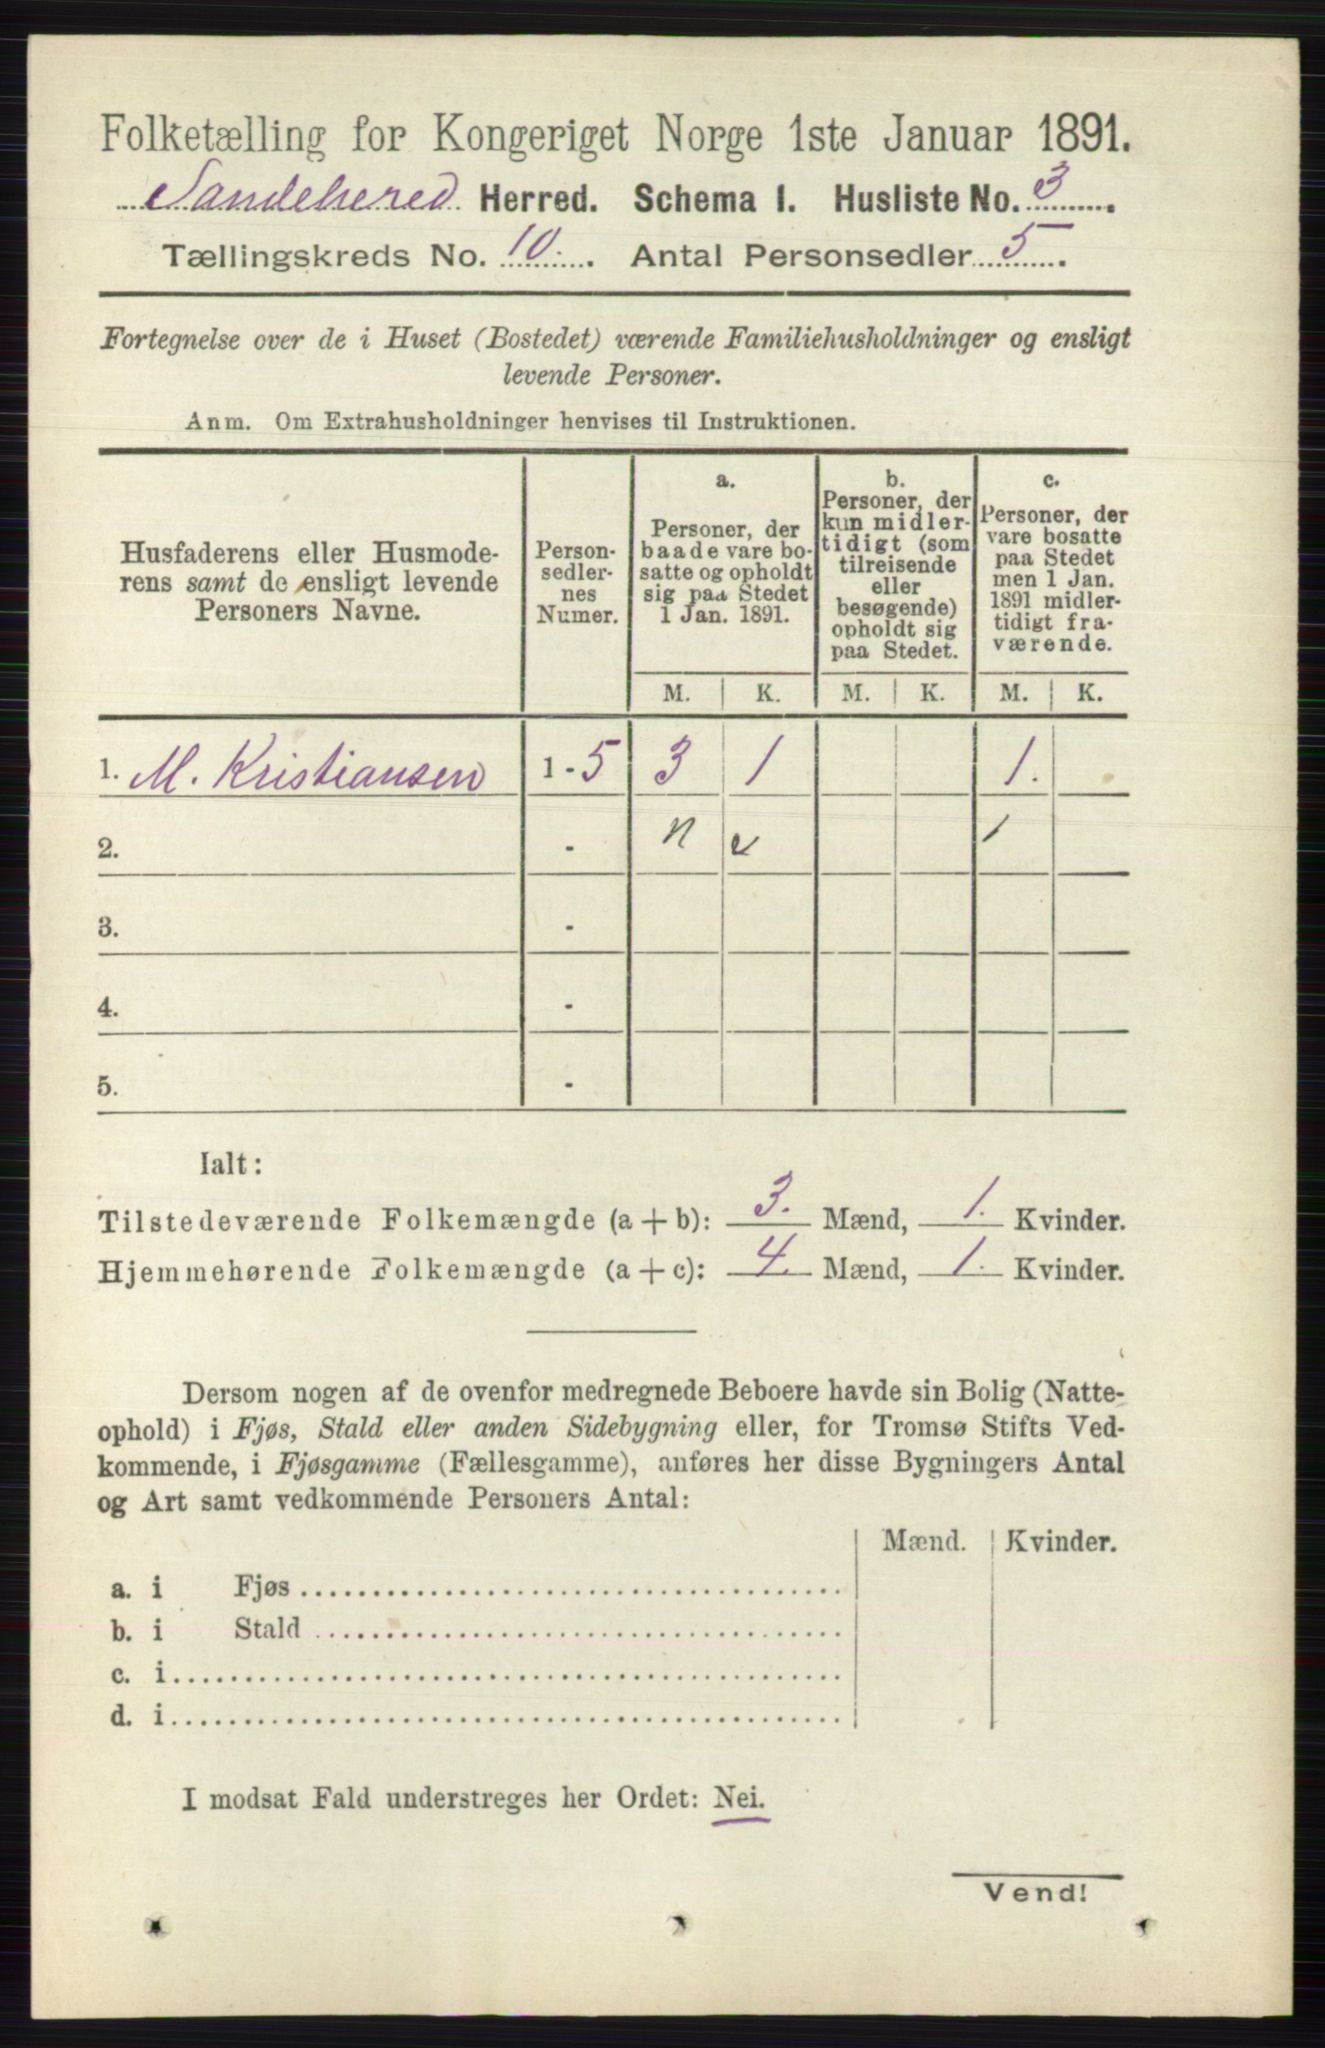 Folketælling for Kongeriget Norge 1ste Januar 1891.
Sandehered Herred. Schema 1. Husliste No. 3
Tællingskreds No. 10. Antal Personsedler 5.
Fortegnelse over de i Huset (Bostedet) værende Familiehusholdninger og ensligt
levende Personer.
Anm. Om Extrahusholdninger henvises til Instruktionen.
Husfaderens eller Husmode-
rens samt de ensligt levende
Personers Navne.
Person-
sedler-
nes
Numer.
a.
Personer, der
baade vare bo-
satte og opholdt
sig paa Stedet
1 Jan. 1891.
b.
Personer, der
kun midler-
tidigt (som
tilreisende
eller
besøgende)
opholdt sig
paa Stedet.
c.
Personer, der
vare bosatte
paa Stedet
men 1 Jan.
1891 midler-
tidigt fra-
værende.
M. K. M. K. M. K.
1. M. Kristiansen 1 - 5 3 1 1.
2. -
3. -
4. -
5. -
Ialt:
Tilstedeværende Folkemængde (a + b): 3. Mænd, 1. Kvinder.
Hjemmehørende Folkemængde (a + c): 4. Mænd, 1. Kvinder.
Dersom nogen af de ovenfor medregnede Beboere havde sin Bolig (Natte-
ophold) i Fjøs, Stald eller anden Sidebygning eller, for Tromsø Stifts Ved-
kommende, i Fjøsgamme (Fællesgamme), anføres her disse Bygningers Antal
og Art samt vedkommende Personers Antal:
Mænd. Kvinder.
a. i Fjøs
b. i Stald
c. i
d. i
I modsat Fald understreges her Ordet: Nei.
Vend!